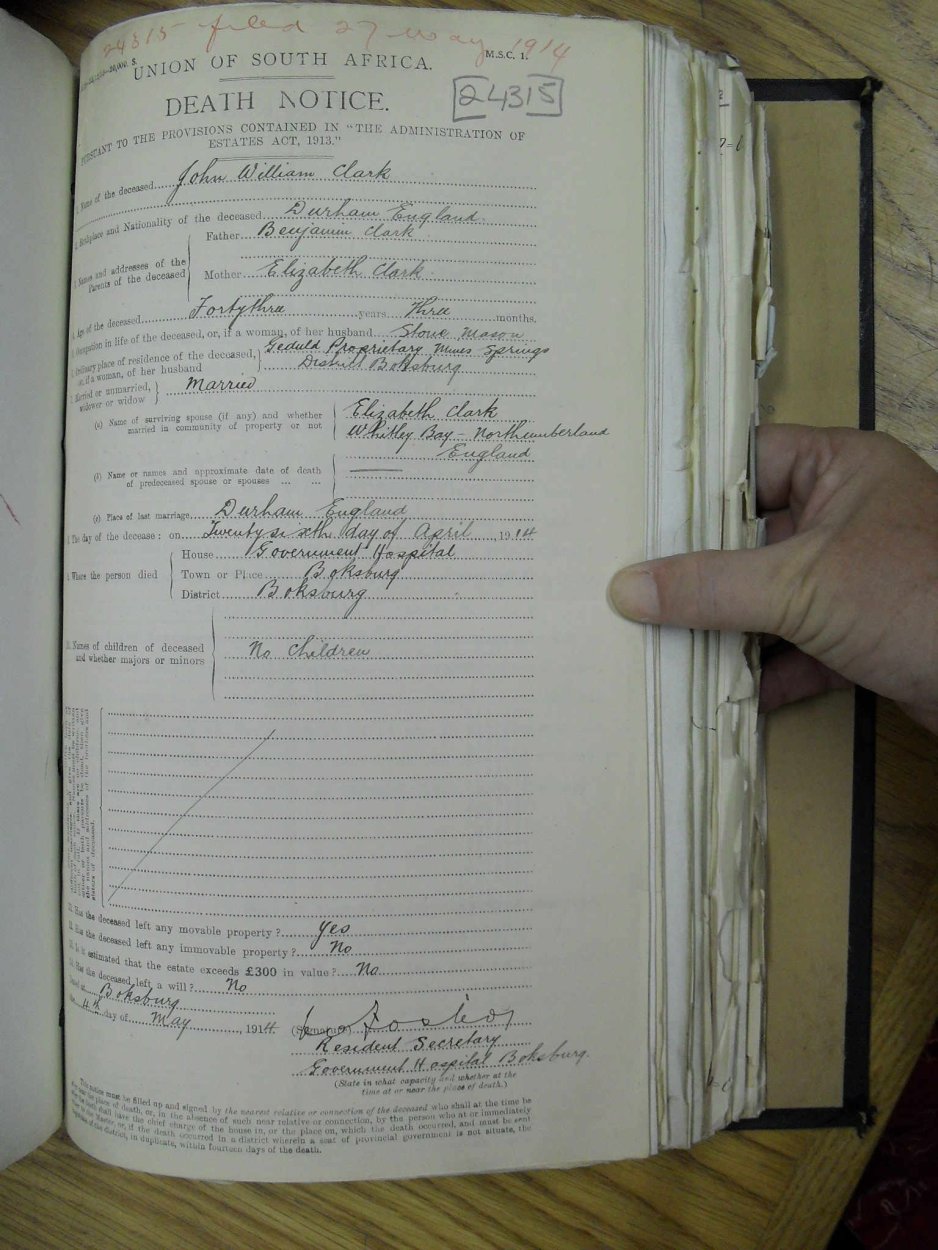 24315 filed 27 May 1914
M.S.C. 1.
UNION OF SOUTH AFRICA.
DEATH NOTICE.
24315
PURSUANT TO THE PROVISIONS CONTAINED IN "THE ADMINISTRATION OF
ESTATES ACT, 1913."
1. Name of the deceased John William Clark
2. Birthplace and Nationality of the deceased Durham England
3. Names and addresses of the Parents of the deceased
Father Benjamin Clark
Mother Elizabeth Clark
4. Age of the deceased Fortythree years Three months.
5. Occupation in life of the deceased, or, if a woman, of her husband Stone Mason
6. Ordinary place of residence of the deceased, or, if a woman, of her husband
Geduld Proprietary Mines Springs
District Boksburg
7. Married or unmarried, widower or widow Married
(a) Name of surviving spouse (if any) and whether married in community of property or not
Elizabeth Clark
Whitley Bay - Northumberland
England
(b) Name or names and approximate date of death
of predeceased spouse or spouses ... ...
(c) Place of last marriage Durham England
8. The day of the decease: on Twenty sixth day of April 1914
9. Where the person died
House Government Hospital
Town or Place Boksburg
District Boksburg
10. Names of children of deceased
and whether majors or minors
No Children
the names and addresses of the brothers and
sisters of deceased.
11. Has the deceased left any movable property? Yes
12. Has the deceased left any immovable property? No
13. Is it estimated that the estate exceeds £300 in value? No
14. Has the deceased left a will? No
Dated at Boksburg
the 4th day of May, 1914
(Signature)
Resident Secretary
Government Hospital Boksburg.
(State in what capacity and whether at the
time at or near the place of death.)
This notice must be filled up and signed by the nearest relative or connection of the deceased who shall at the time be
at or near the place of death, or, in the absence of such near relative or connection, by the person who at or immediately
after the death shall have the chief charge of the house in, or the place on, which the death occurred, and must be sent
to the Master, or, if the death occurred in a district wherein a seat of provincial government is not situate, the
of the district, in duplicate, within fourteen days of the death.